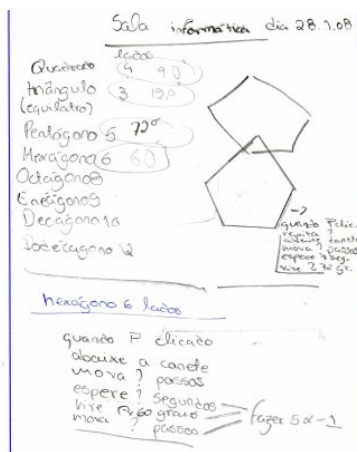 Sala informática dia 28.1.08
lados
Quadrado 4 90°
triângulo 3 120°
(equilatro)
Pentágono 5 72°
Hexágono 6 60°
Octágono 8
Eneágono 9
Decágono 10
Dodecágono 12
quando P clic.
repita ?
abaixe caneta
mova ? passos
espere ? seg.
vire 72 gr.
hexágono 6 lados
quando P clicado
abaixe a caneta
mova ? passos
espere ? segundos
vire 60 graus
mova ? passos
fazer 5x-1